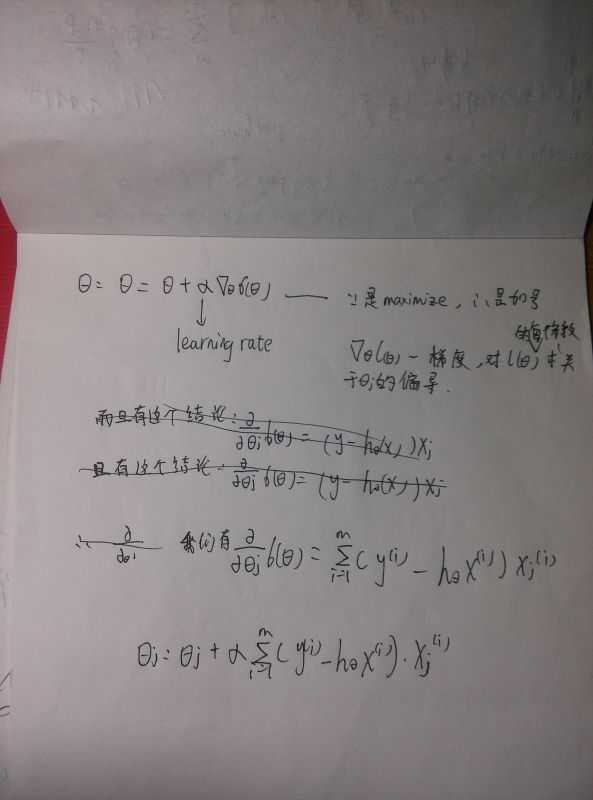 θ: θ = θ + α∇θℓ(θ) —— ∵是maximize, ∴是加号
learning rate
∇θℓ(θ) — 梯度, 对ℓ(θ)求关
于θj的偏导.
而且有这个结论: ∂/∂θj ℓ(θ) = (y - hθ(x))xj
且有这个结论: ∂/∂θj ℓ(θ) = (y - hθ(x))xj
∴ ∂/∂θi 我们有 ∂/∂θj ℓ(θ) = Σ_{i=1}^{m} (y^(i) - hθ x^(i)) xj^(i)
θj: θj + α Σ_{i=1}^{m} (y^(i) - hθ x^(i)) · xj^(i)